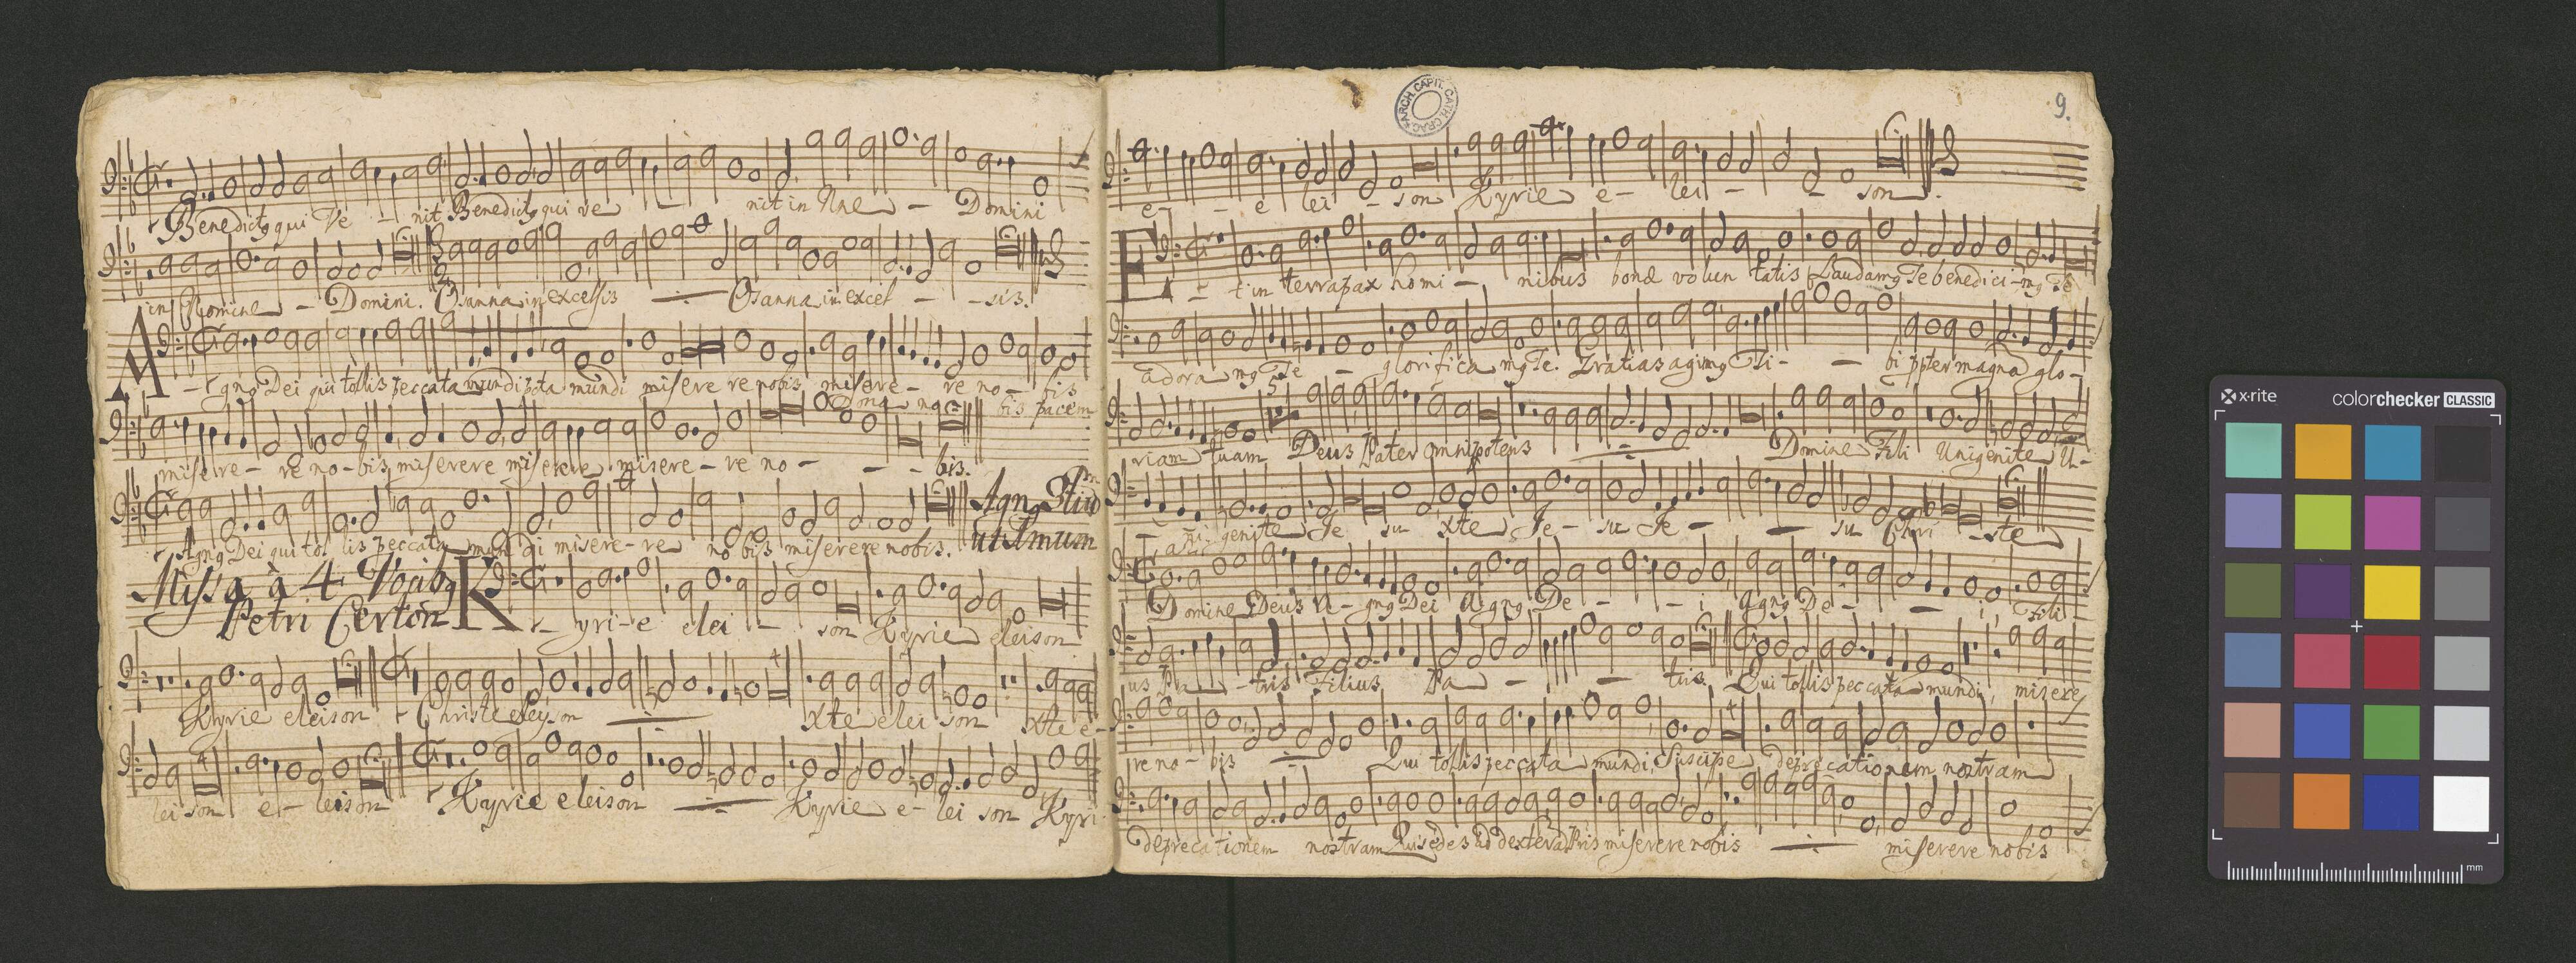 Benedictꝯ qui Ve - nit Benedictꝯ qui ve - nit in Nne - Domini
in Nomine - Domini. Osanna in excelsis Osanna in excel - - sis.
A - gnꝯ Dei qui tollis peccata mundi pcta mundi miserere nobis misere - re no - bis
Dona no bis pacem
misere - re no - bis miserere miserere misere - re no - - - bis.
Agnꝯ Dei qui tol lis peccata mundi misere - re nobis miserere nobis.
ut Imum
Missa à 4 Vocibꝯ
Petri Certon
K - yri - e elei - son Kyrie eleison
Kyrie eleison Christe eleyson xte elei son xte e -
lei son e - leison Kyrie eleison Kyrie e - lei son Kyri
9.
ARCH. CAPIT. CATH. CRAC.
e - - e lei - son Kyrie e - lei - - son.
Et in terra pax homi - nibus bonæ volun tatis Laudamꝯ Te benedici - mꝯ Te
adora mꝯ Te - glorifica mꝯ Te. Gratias agimꝯ Ti - - bi ppter magna glo -
riam tuam Deus Pater omnipotens Domine Fili Unigenite U -
ni - genite Je su xte Je - su Je - - su Chri - ste
Domine Deus A - gnꝯ Dei Agnꝯ De - - i Agnꝯ De - - i, Fili -
us Pa - tris Filius Pa - - tris. Qui tollis peccata mundi, misere
re no - bis Qui tollis peccata mundi, Suscipe deprecationem nostram
deprecationem nostram Qui sedes ad dexterã Pris miserere nobis miserere nobis
x-rite colorchecker CLASSIC
mm